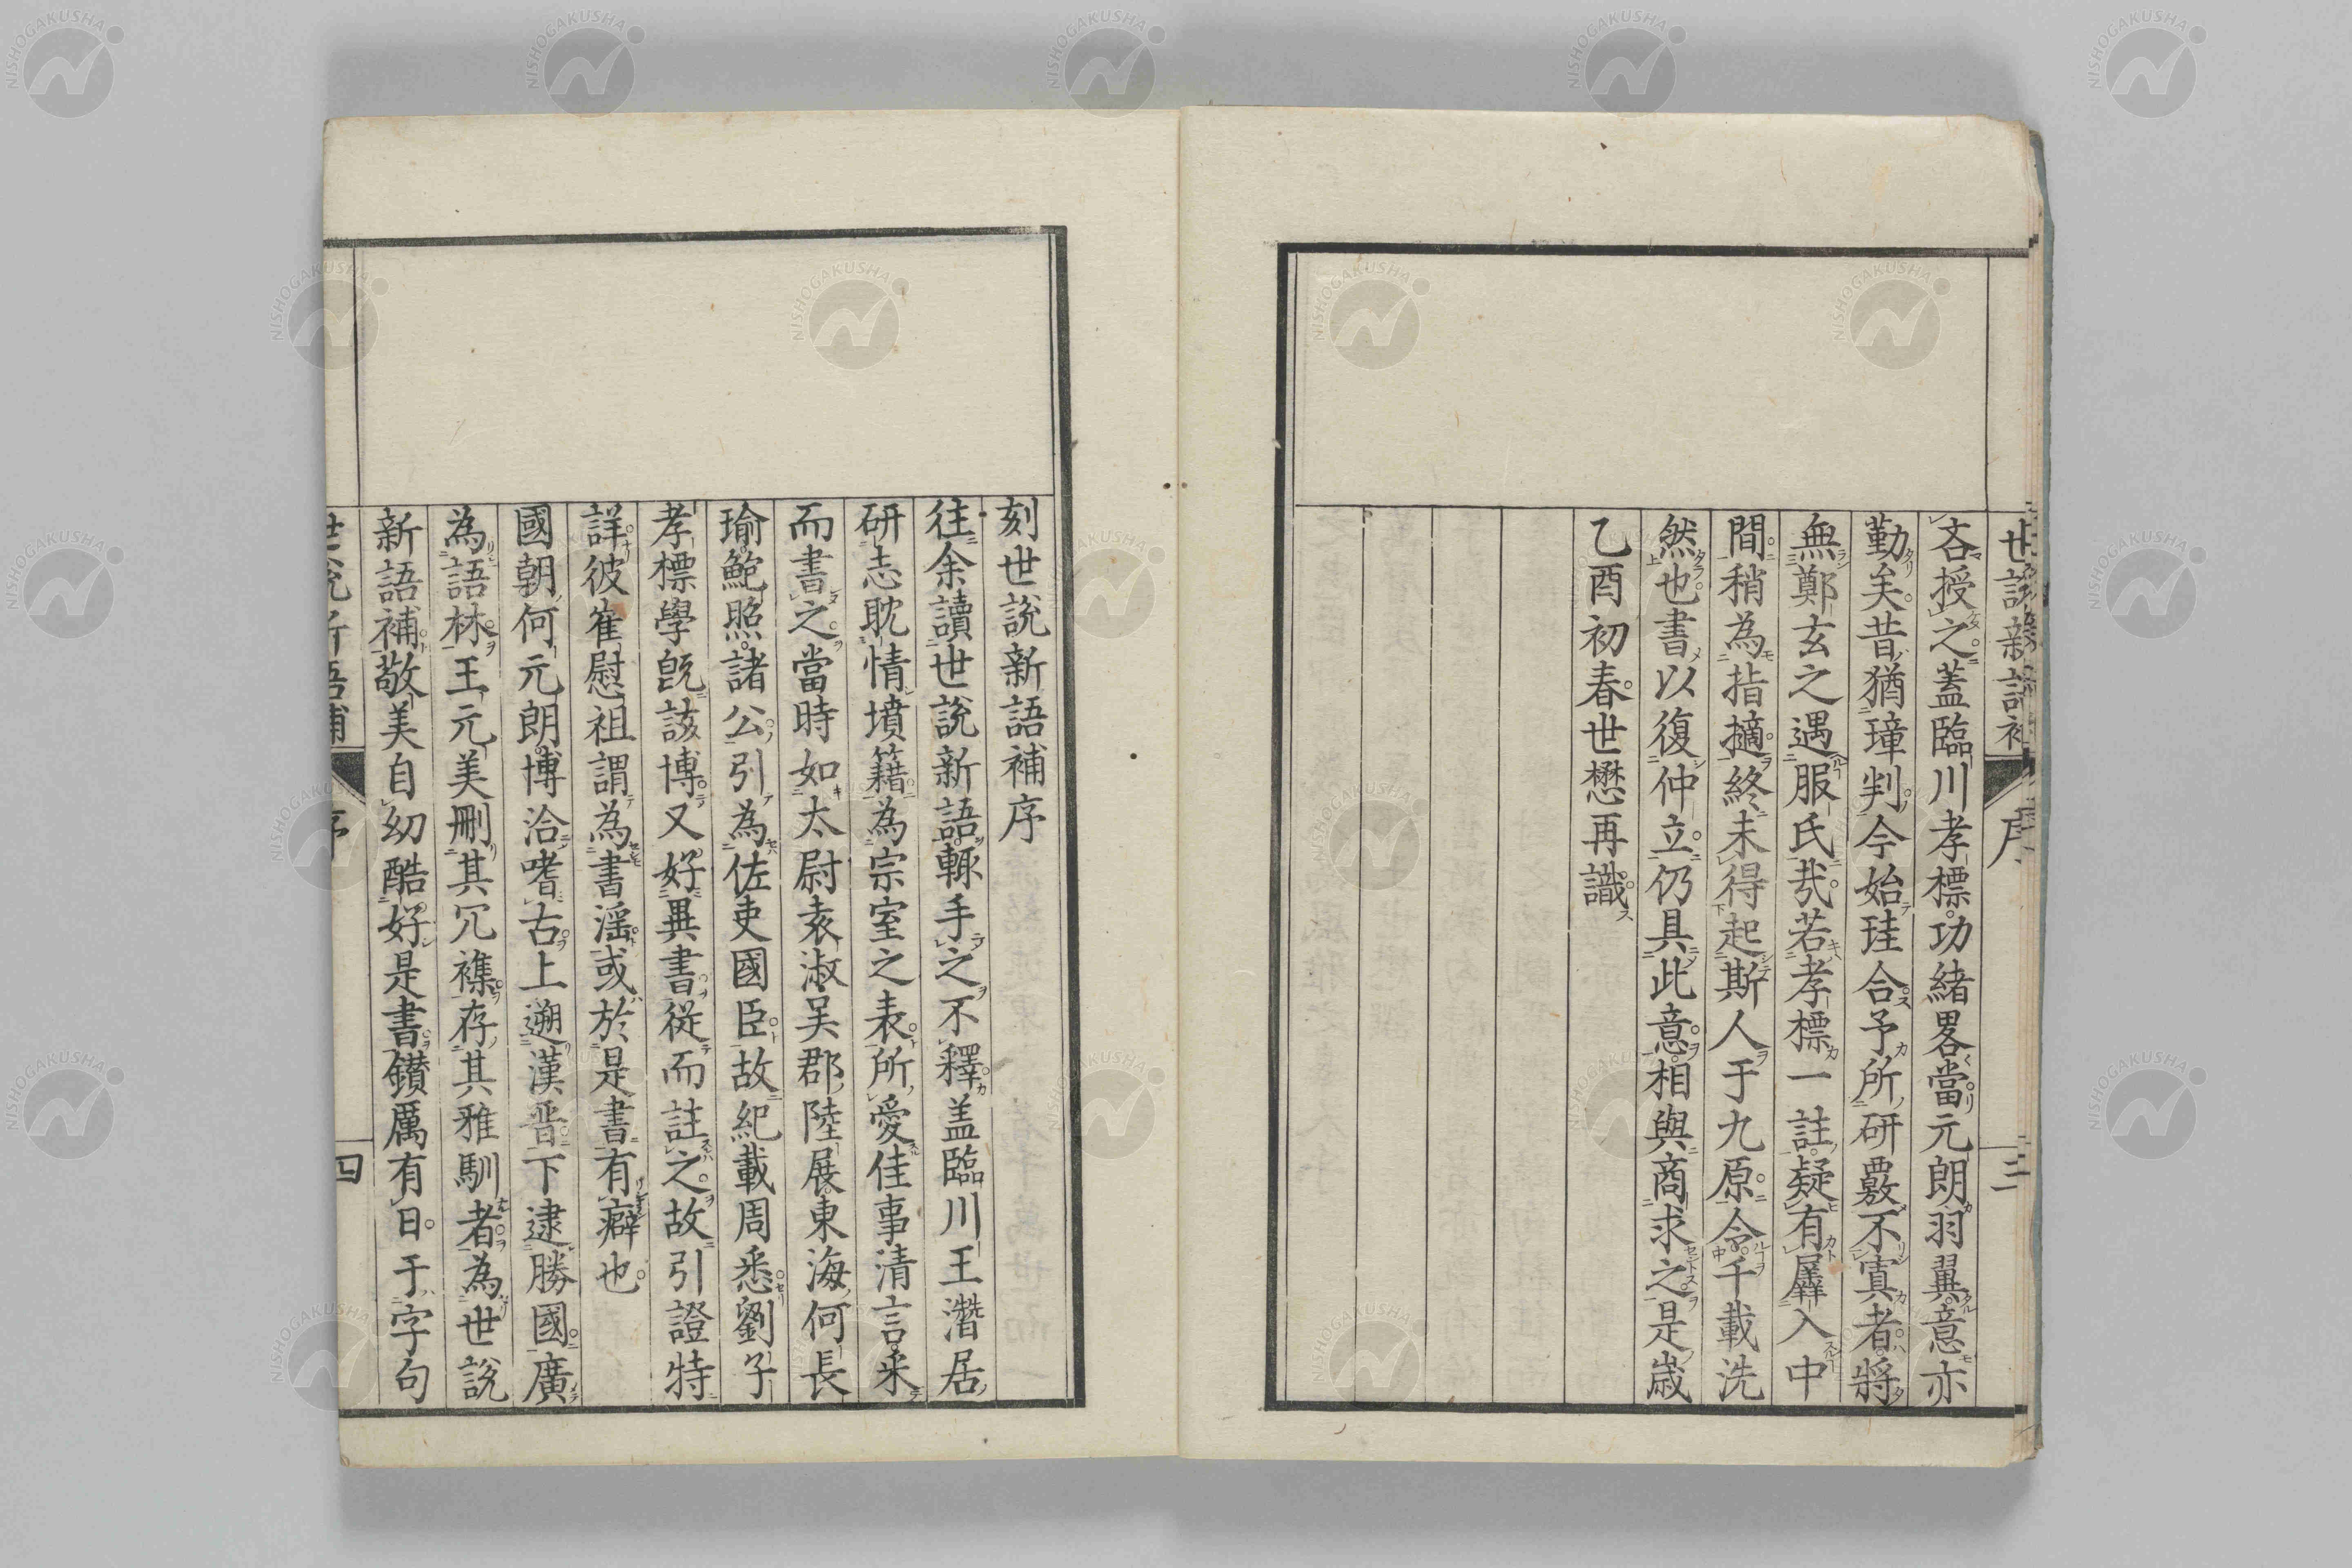 世說新語補 序 三
吝授之蓋臨川孝標功緒畧當元朗羽翼意亦
勤矣昔猶璋判今始珪合予所研覈不寘者將
無鄭玄之遇服氏哉若孝標一註疑有羼入中
間稍為指摘終未得起斯人于九原令千載洗
然也書以復仲立仍具此意相與商求之是歲
乙酉初春世懋再識
刻世說新語補序
往余讀世說新語輙手之不釋盖臨川王濳居
研志耽情墳籍為宗室之表所愛佳事清言采
而書之當時如太尉袁淑吴郡陸展東海何長
瑜鮑照諸公引為佐吏國臣故紀載周悉劉子
孝標學旣該博又好異書從而註之故引證特
詳彼崔慰祖謂為書滛或於是書有癖也
國朝何元朗博洽嗜古上遡漢晋下逮勝國廣
為語林王元美刪其冗襍存其雅馴者為世說
新語補敬美自幼酷好是書鑚厲有日于字句
世說新語補 序 四
NISHOGAKUSHA